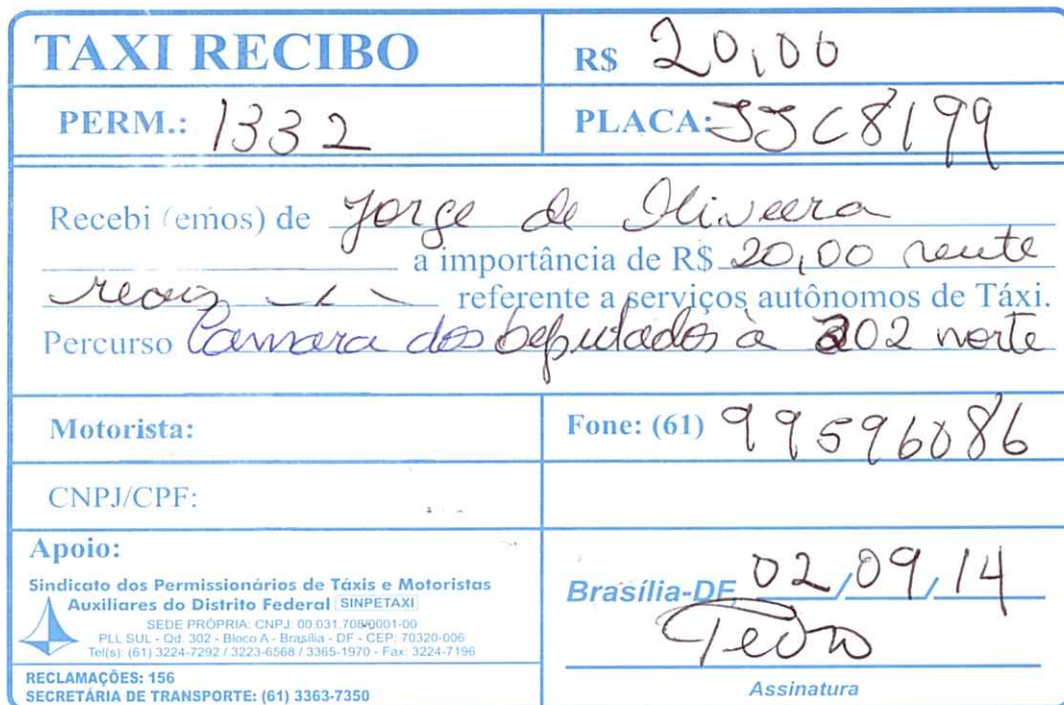 TAXI RECIBO
R$ 20,00
PERM.: 1332
PLACA: JJC8199
Recebi (emos) de Jorge de Oliveira
a importância de R$ 20,00 vinte
reais referente a serviços autônomos de Táxi.
Percurso Camara dos Deputados à 202 norte
Motorista:
Fone: (61) 99596086
CNPJ/CPF:
Apoio:
Sindicato dos Permissionários de Táxis e Motoristas
Auxiliares do Distrito Federal SINPETAXI
SEDE PRÓPRIA: CNPJ: 00.031.708/0001-00
PLL SUL - Qd. 302 - Bloco A - Brasília - DF - CEP: 70320-006
Tel(s): (61) 3224-7292 / 3223-6568 / 3365-1970 - Fax: 3224-7196
RECLAMAÇÕES: 156
SECRETÁRIA DE TRANSPORTE: (61) 3363-7350
Brasília-DF, 02/09/14
Pedro
Assinatura